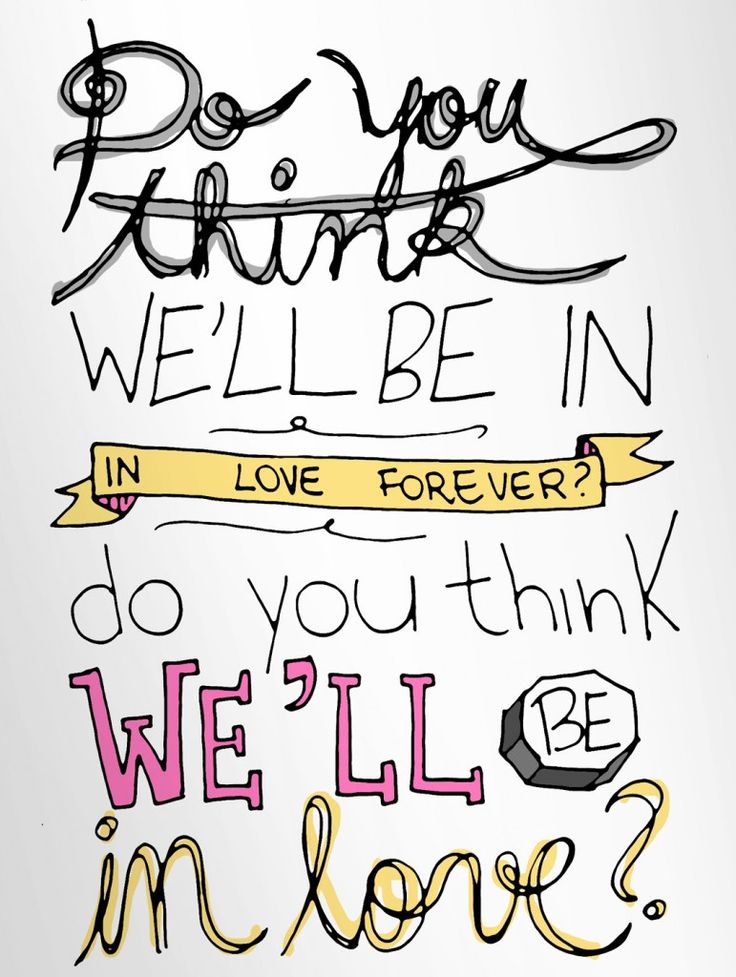 Do you
think
WE'LL BE IN
IN LOVE FOREVER?
do you think
WE'LL BE
in love?